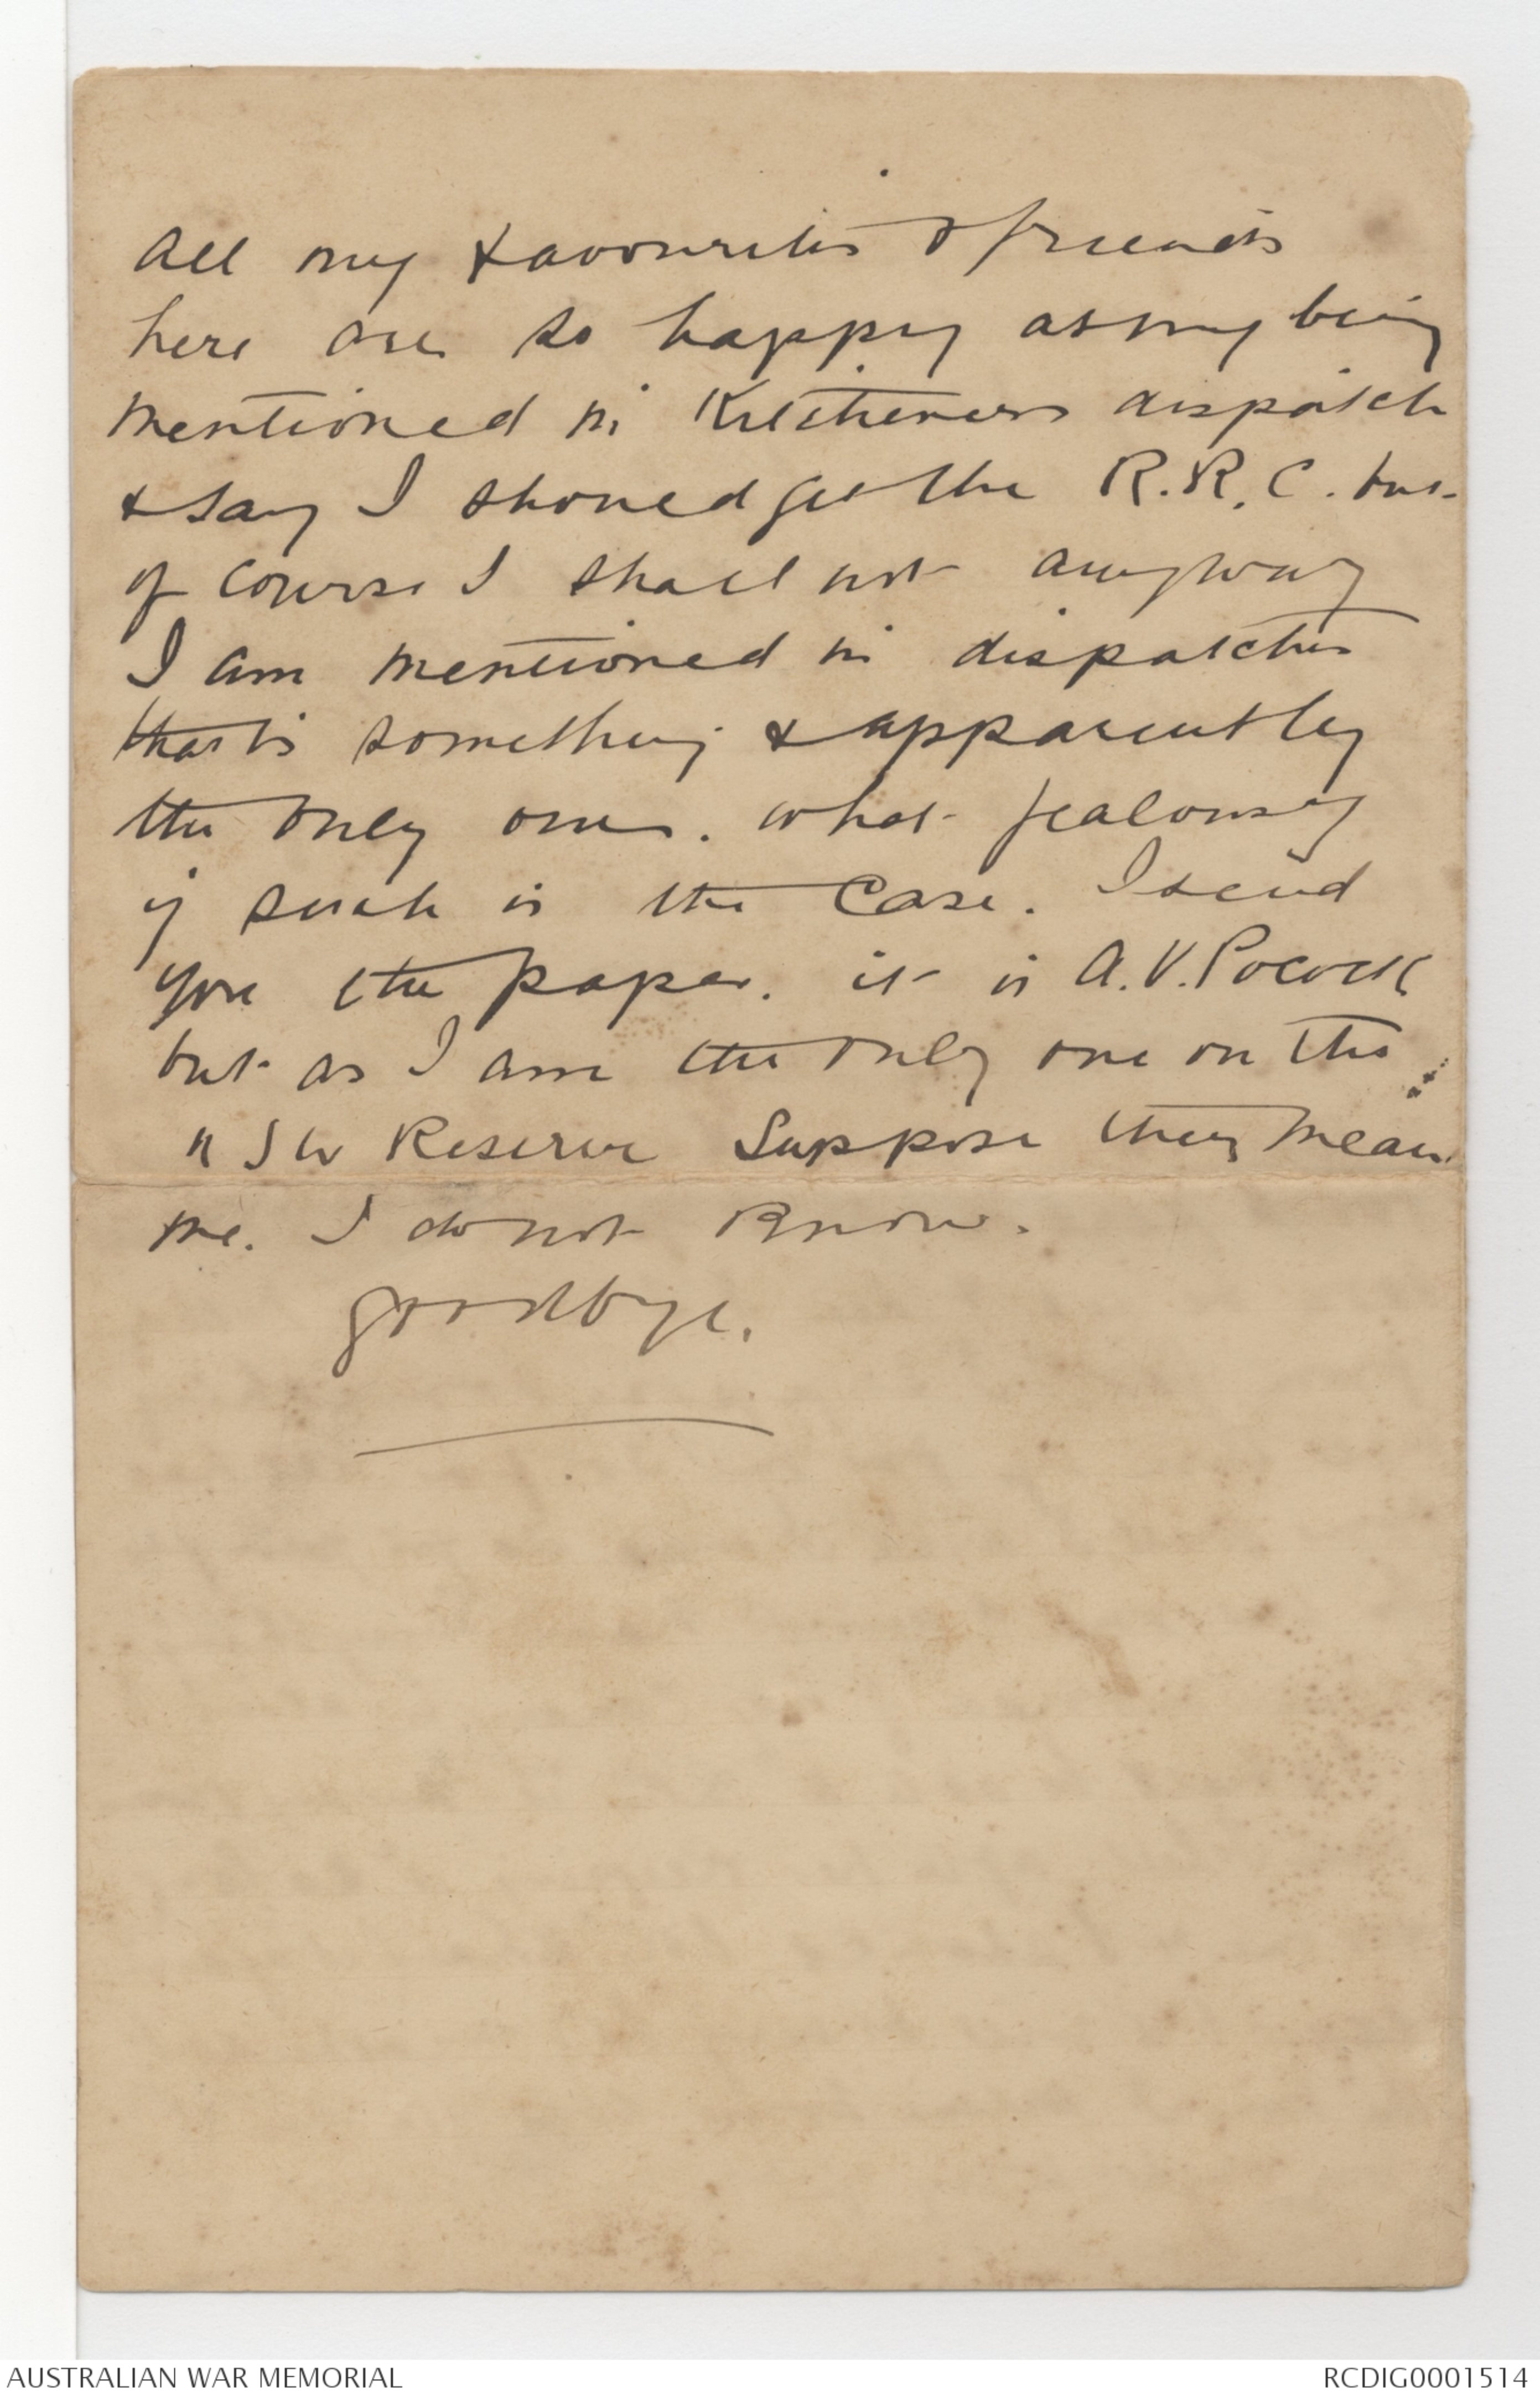 All my favourites & friends
here are so happy at my being
mentioned in Kitcheners dispatch
& say I should get the R.R.C. but
of course I shall not anyway
I am mentioned in dispatches
that is something & apparently
the only one. what jealousy
if such is the case. I send
you the paper. it is A.V. Pocock
but as I am the only one on the
N S W Reserve Suppose they mean
me. I do not know.
goodbye.
AUSTRALIAN WAR MEMORIAL
RCDIG0001514